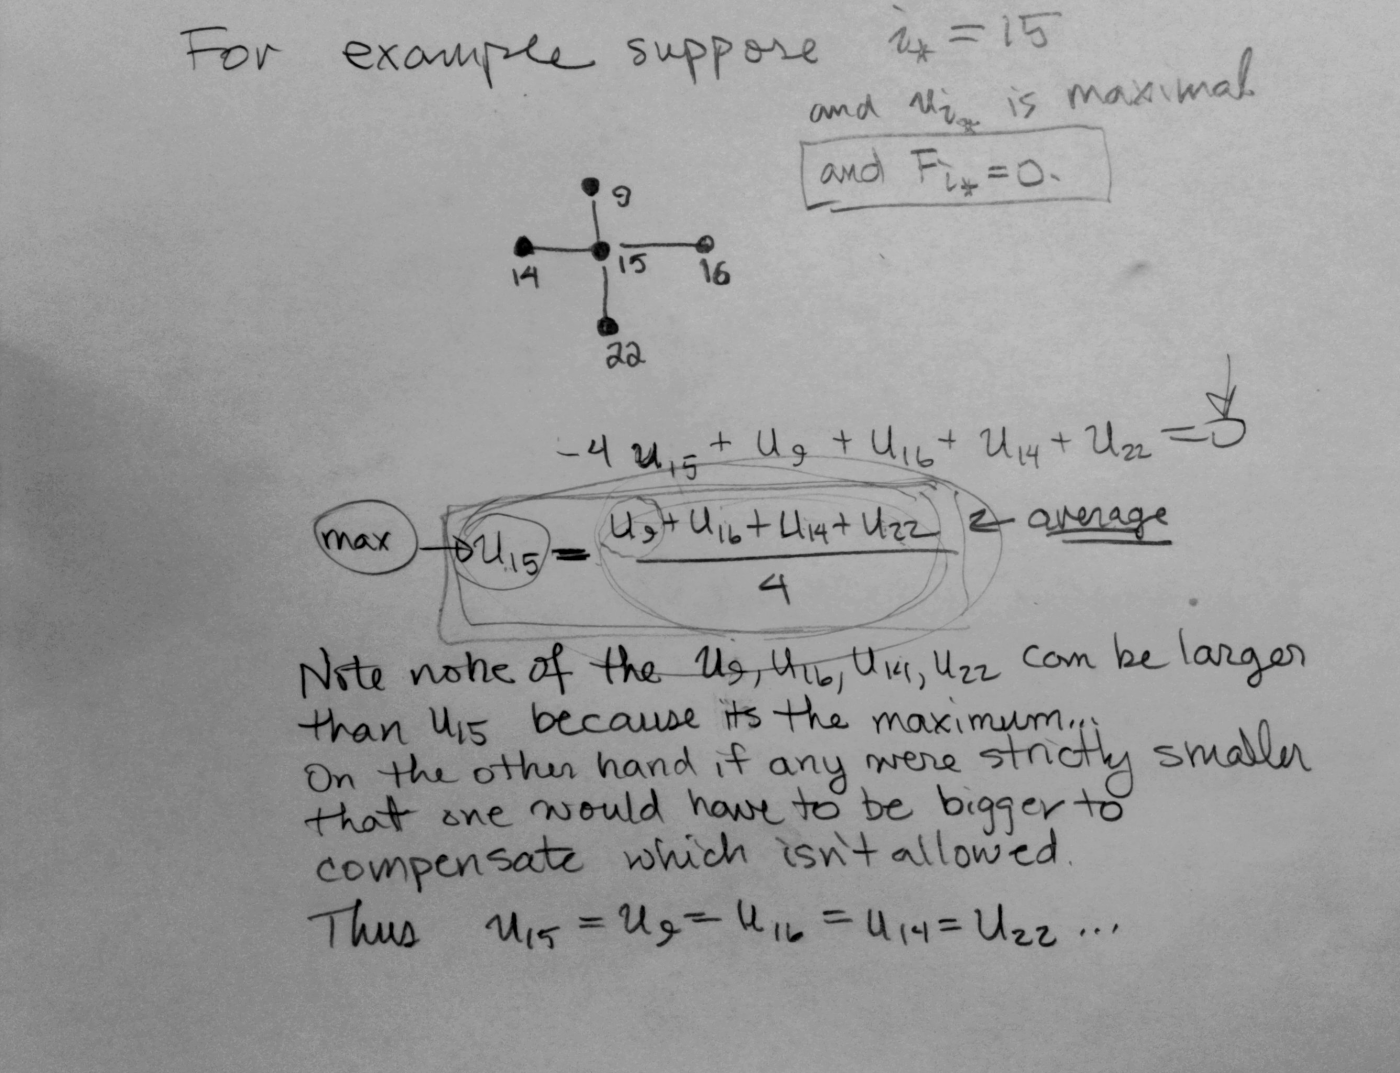 For example suppose i* = 15
and u_i* is maximal
and F_i* = 0.
9
14 15 16
22
-4 u15 + u9 + u16 + u14 + u22 = 0
max → u15 = (u9 + u16 + u14 + u22) / 4 ← average
Note none of the u9, u16, u14, u22 can be larger
than u15 because its the maximum...
On the other hand if any were strictly smaller
that one would have to be bigger to
compensate which isn't allowed.
Thus u15 = u9 = u16 = u14 = u22 ...